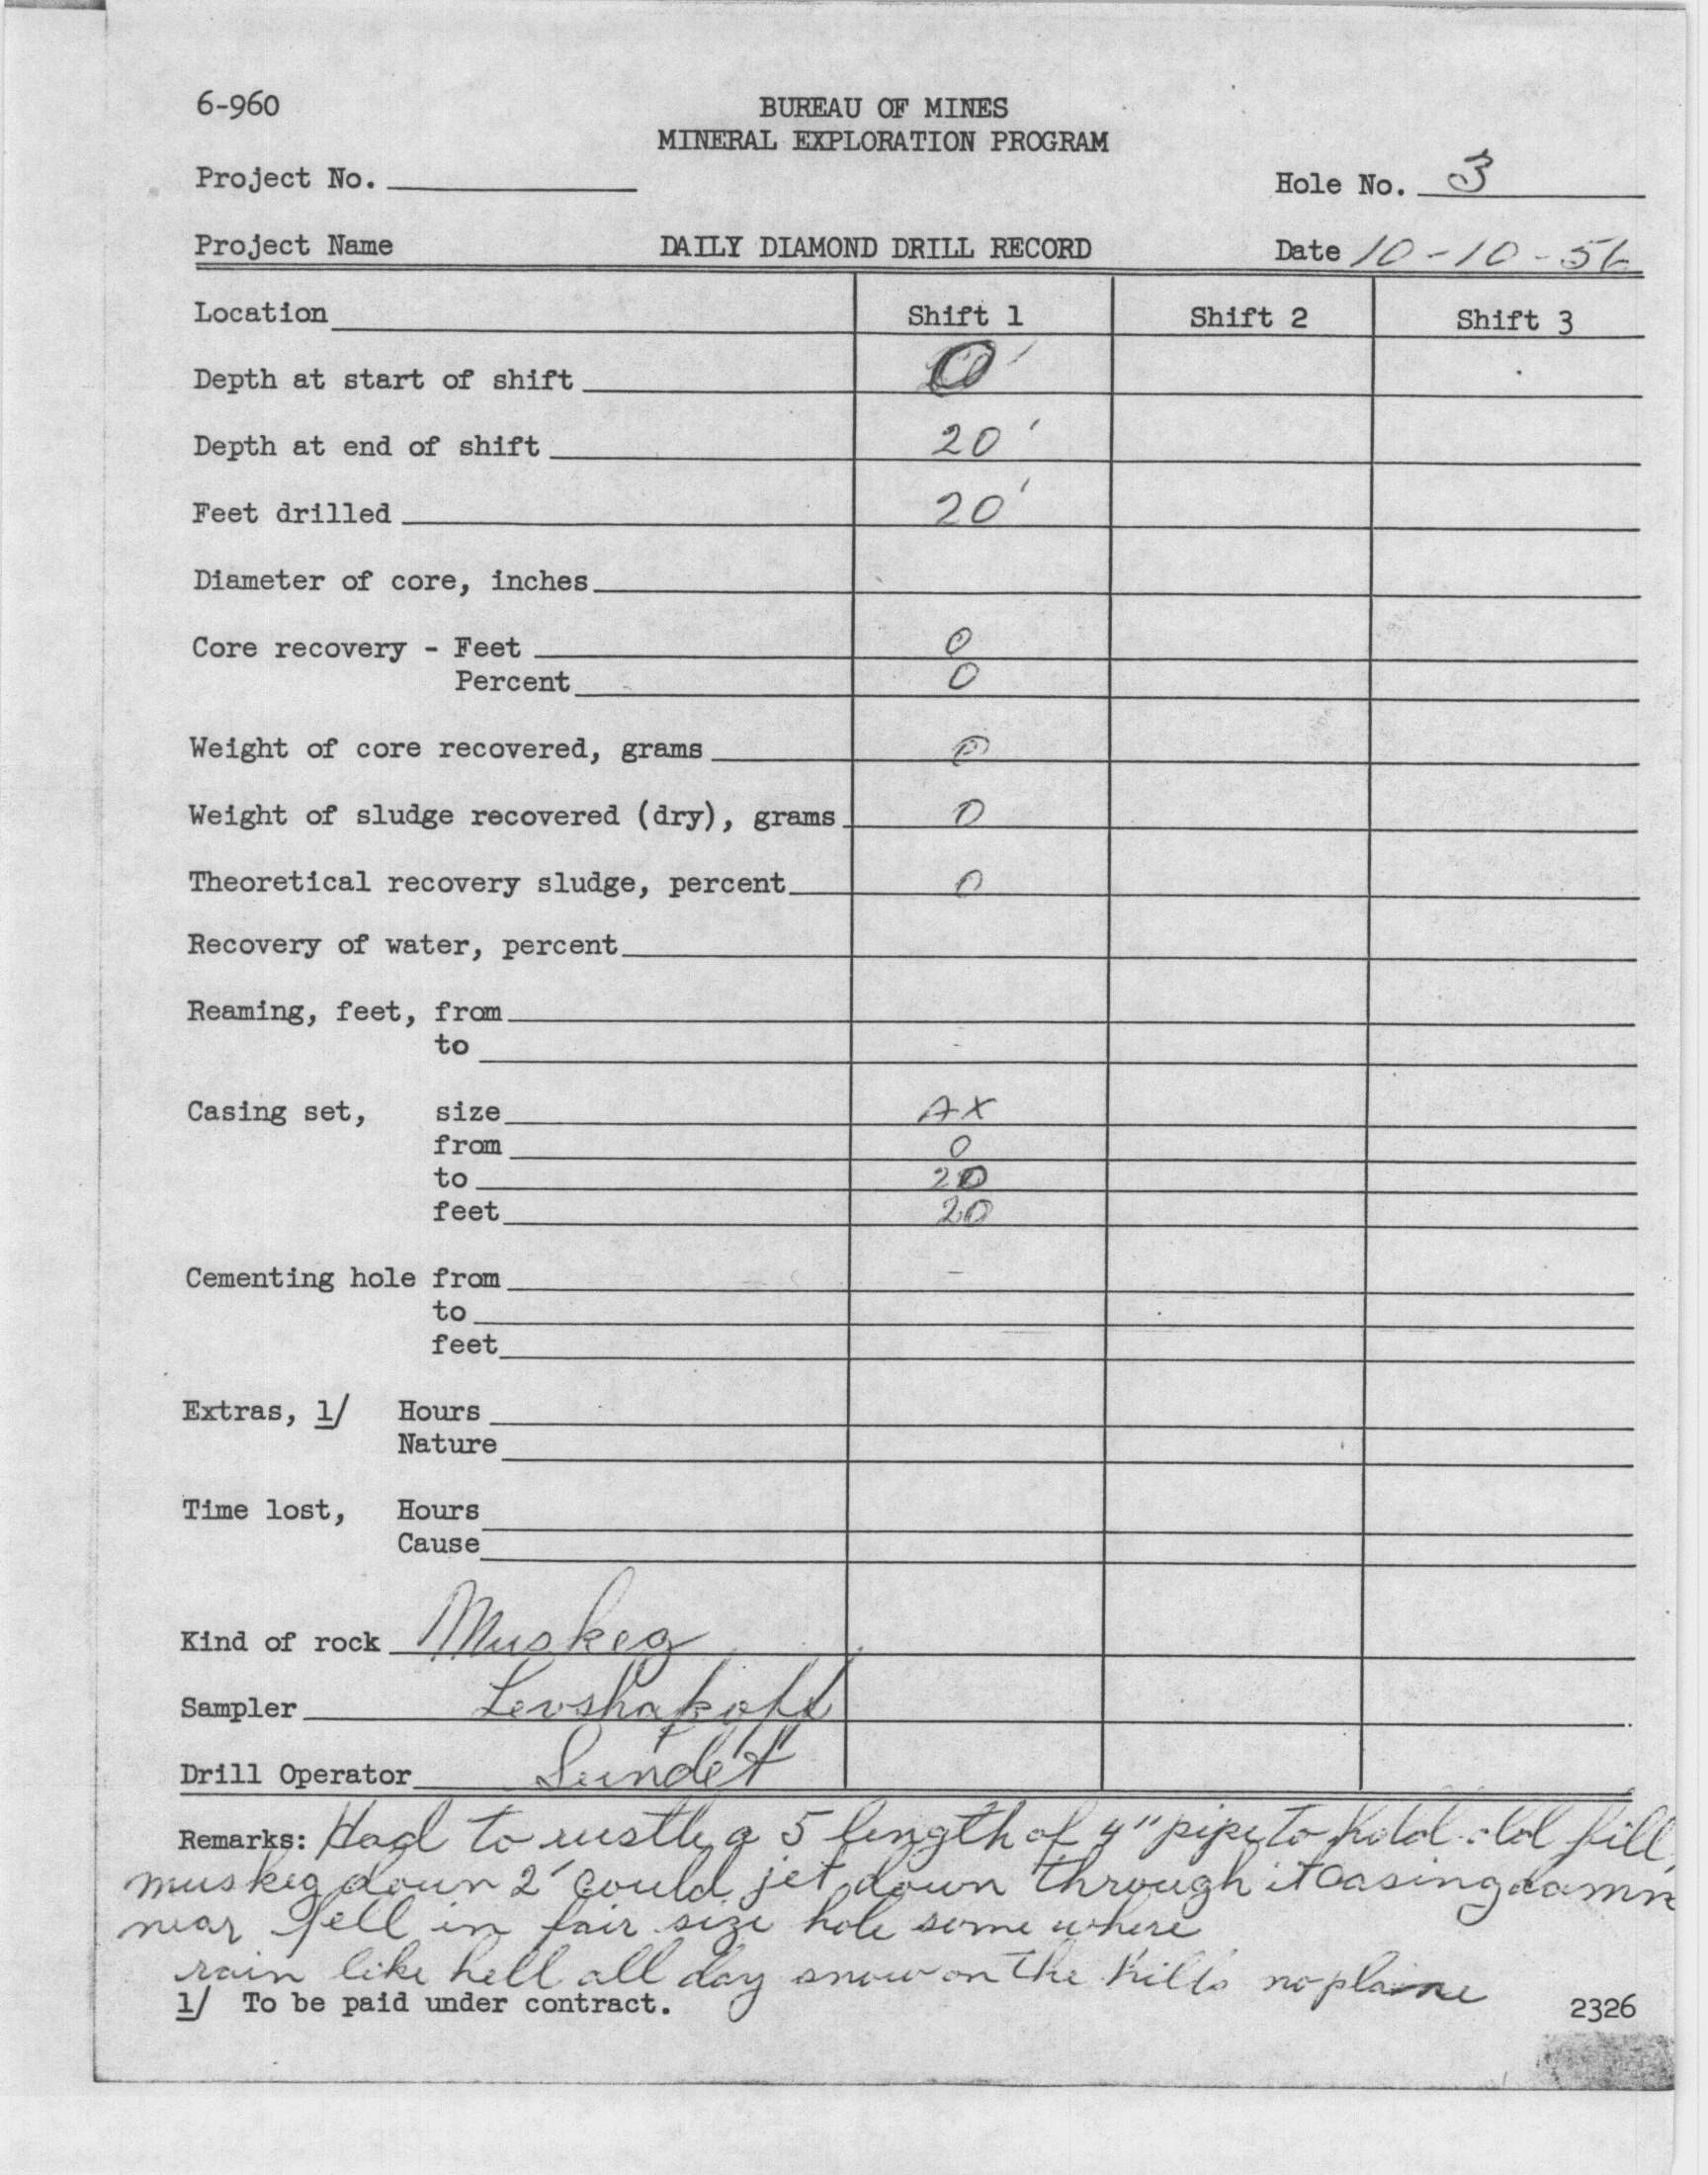 6-960
BUREAU OF MINES
MINERAL EXPLORATION PROGRAM
Project No.
Hole No. 3
Project Name DAILY DIAMOND DRILL RECORD Date 10-10-56
Location Shift 1 Shift 2 Shift 3
Depth at start of shift 0'
Depth at end of shift 20'
Feet drilled 20'
Diameter of core, inches
Core recovery - Feet 0
Percent 0
Weight of core recovered, grams 0
Weight of sludge recovered (dry), grams 0
Theoretical recovery sludge, percent 0
Recovery of water, percent
Reaming, feet, from
to -
Casing set, size AX
from 0
to 20
feet 20
Cementing hole from -
to
feet
Extras, 1/ Hours
Nature
Time lost, Hours
Cause
Kind of rock Muskeg
Sampler Levshakoff
Drill Operator Sundet
Remarks: Had to rustle a 5 length of 4" pipe to hold old fill,
muskeg down 2' could jet down through it casing damn
near fell in fair size hole some where
rain like hell all day snow on the hills no plane
1/ To be paid under contract.
2326